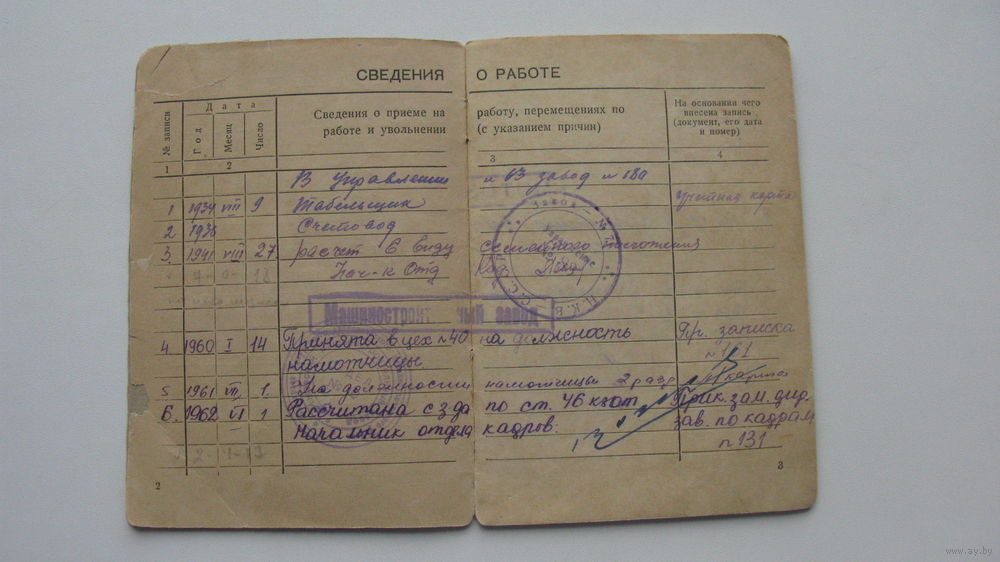 СВЕДЕНИЯ О РАБОТЕ
№ записи
Дата
Год
Месяц
Число
Сведения о приеме на работу, перемещениях по
работе и увольнении (с указанием причин)
На основании чего
внесена запись
(документ, его дата
и номер)
1 2 3 4
В Управлении
завод
1 1934 VIII 9 Табельщик
учетная карта
2 1936 Счетовод
3. 1941 VIII 27. расчет в виду семейного положения
Нач-к Отд Кад
Машиностроит чый завод
4. 1960 I 14 Принята в цех №40 на должность
намотчицы
Пр. записка
№161
5 1961 VII 1. По должности намотчицы 2 разр
6. 1962 VI 1 Рассчитана с з-да по ст. 46 кзот.
Начальник отдела кадров:
Прик. зам. дир.
зав. по кадрам
№131
2
3
www.ay.by